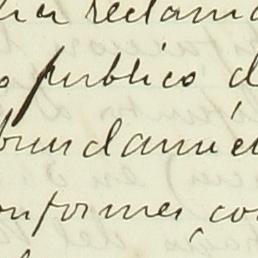 ha reclama
o publico d
bundamié
onformes co